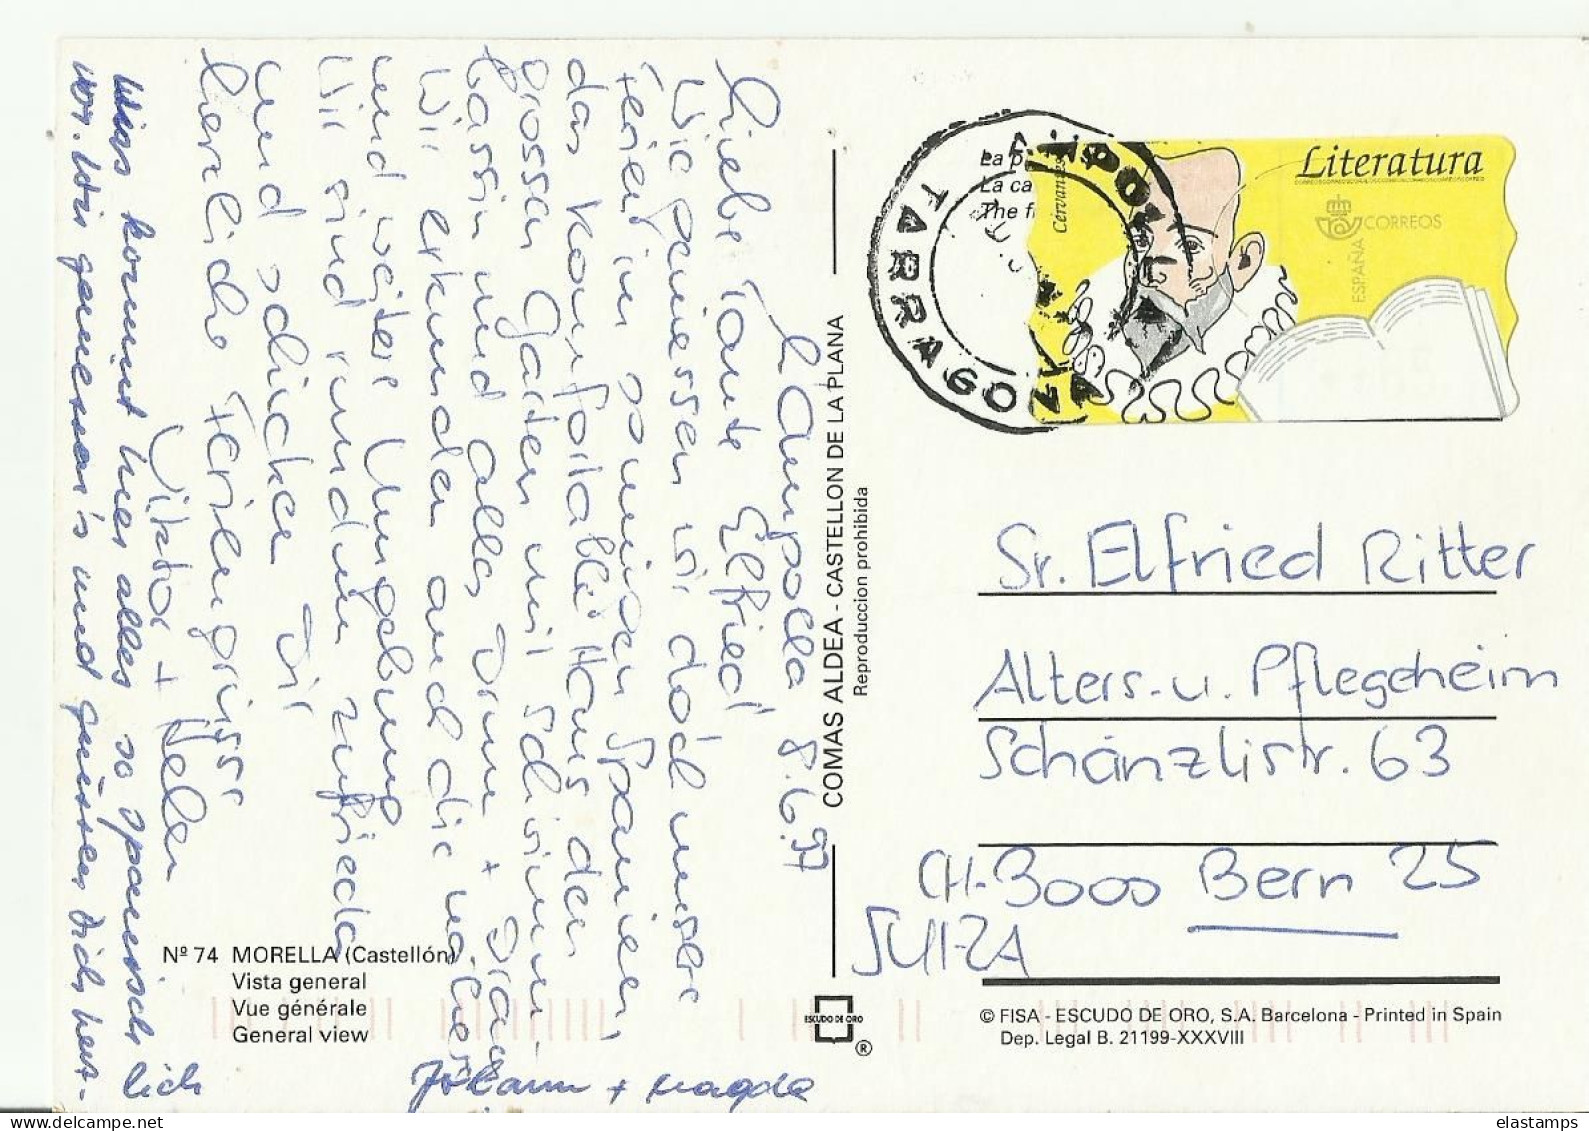 L'Ampolla 8.6.97
Liebe Tante Elfried
Wie geniessen wir doch unsere
Ferien im sonnigen Spanien,
das komfortable Haus, den
grossen Garten mit Schwimm-
bassin und alles Drum + Dran.
Wir erkunden auch die nähere
und weitere Umgebung.
Wir sind rundum zufrieden
und schicken Dir
herzliche Feriengrüsse
Viktor + Helen
Uns kommt hier alles so spanisch
vor. Wir geniessen's und grüssen Dich herz-
lich
Johann + Magda
Nº 74 MORELLA (Castellón)
Vista general
Vue générale
General view
COMAS ALDEA - CASTELLON DE LA PLANA
Reproduccion prohibida
ESCUDO DE ORO
®
La ca
The f
L'AMPOLLA
TARRAGONA
Cervantes
Literatura
CORREOS
ESPAÑA
Sr. Elfried Ritter
Alters- u. Pflegeheim
Schänzlistr. 63
CH-3000 Bern 25
SUIZA
© FISA - ESCUDO DE ORO, S.A. Barcelona - Printed in Spain
Dep. Legal B. 21199-XXXVIII
elastamps